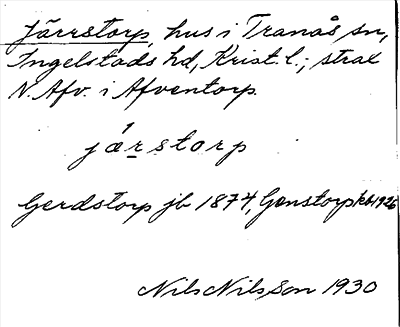 Järrstorp, hus i Tranås sn,
Ingelstads hd, Krist. l.; strax
N. Afv. i Afventorp.
jærstorp
Gerdstorp jb 1874, Genstorp kb 1926
Nils Nilsson 1930